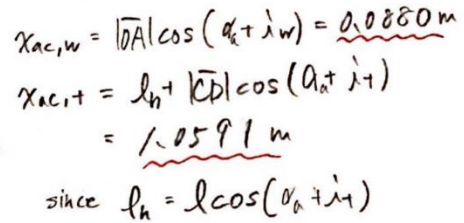 x_{ac,w} = |\overline{OA}| cos (α_a + i_w) = 0.0880 m
x_{ac,t} = l_h + |\overline{CD}| cos (α_a + i_t)
= 1.0591 m
since l_h = l cos(α_a + i_t)